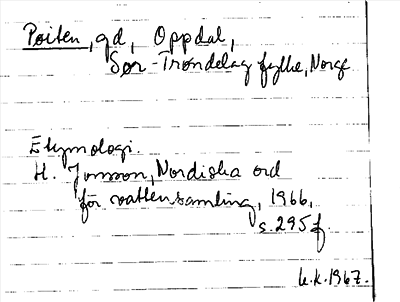 Poiten, gd, Oppdal,
Sør-Trøndelag fylke, Norge
Etymologi.
H. Jonsson, Nordiska ord
för vattensamling, 1966,
s. 295 f.
k.k. 1967.